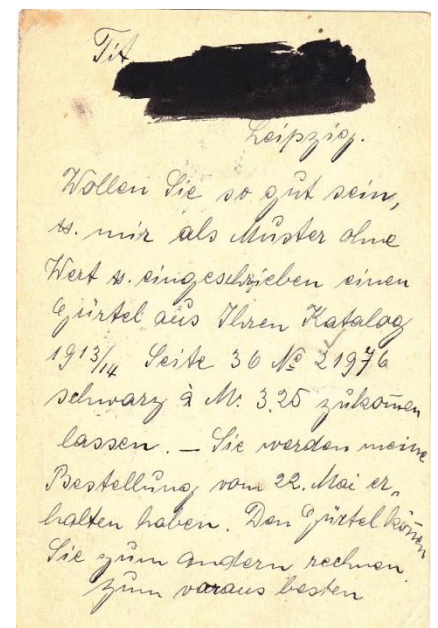 Tit
Leipzig.
Wollen Sie so gut sein,
u. mir als Muster ohne
Wert u. eingeschrieben einen
Gürtel aus Ihren Katalog
1913/14 Seite 36 No 21976
schwarz à M. 3.25 zukom̅en
lassen. – Sie werden meine
Bestellung vom 22. Mai er„
halten haben. Den Gürtel kön̅en
Sie zum andern rechnen.
Zum voraus besten